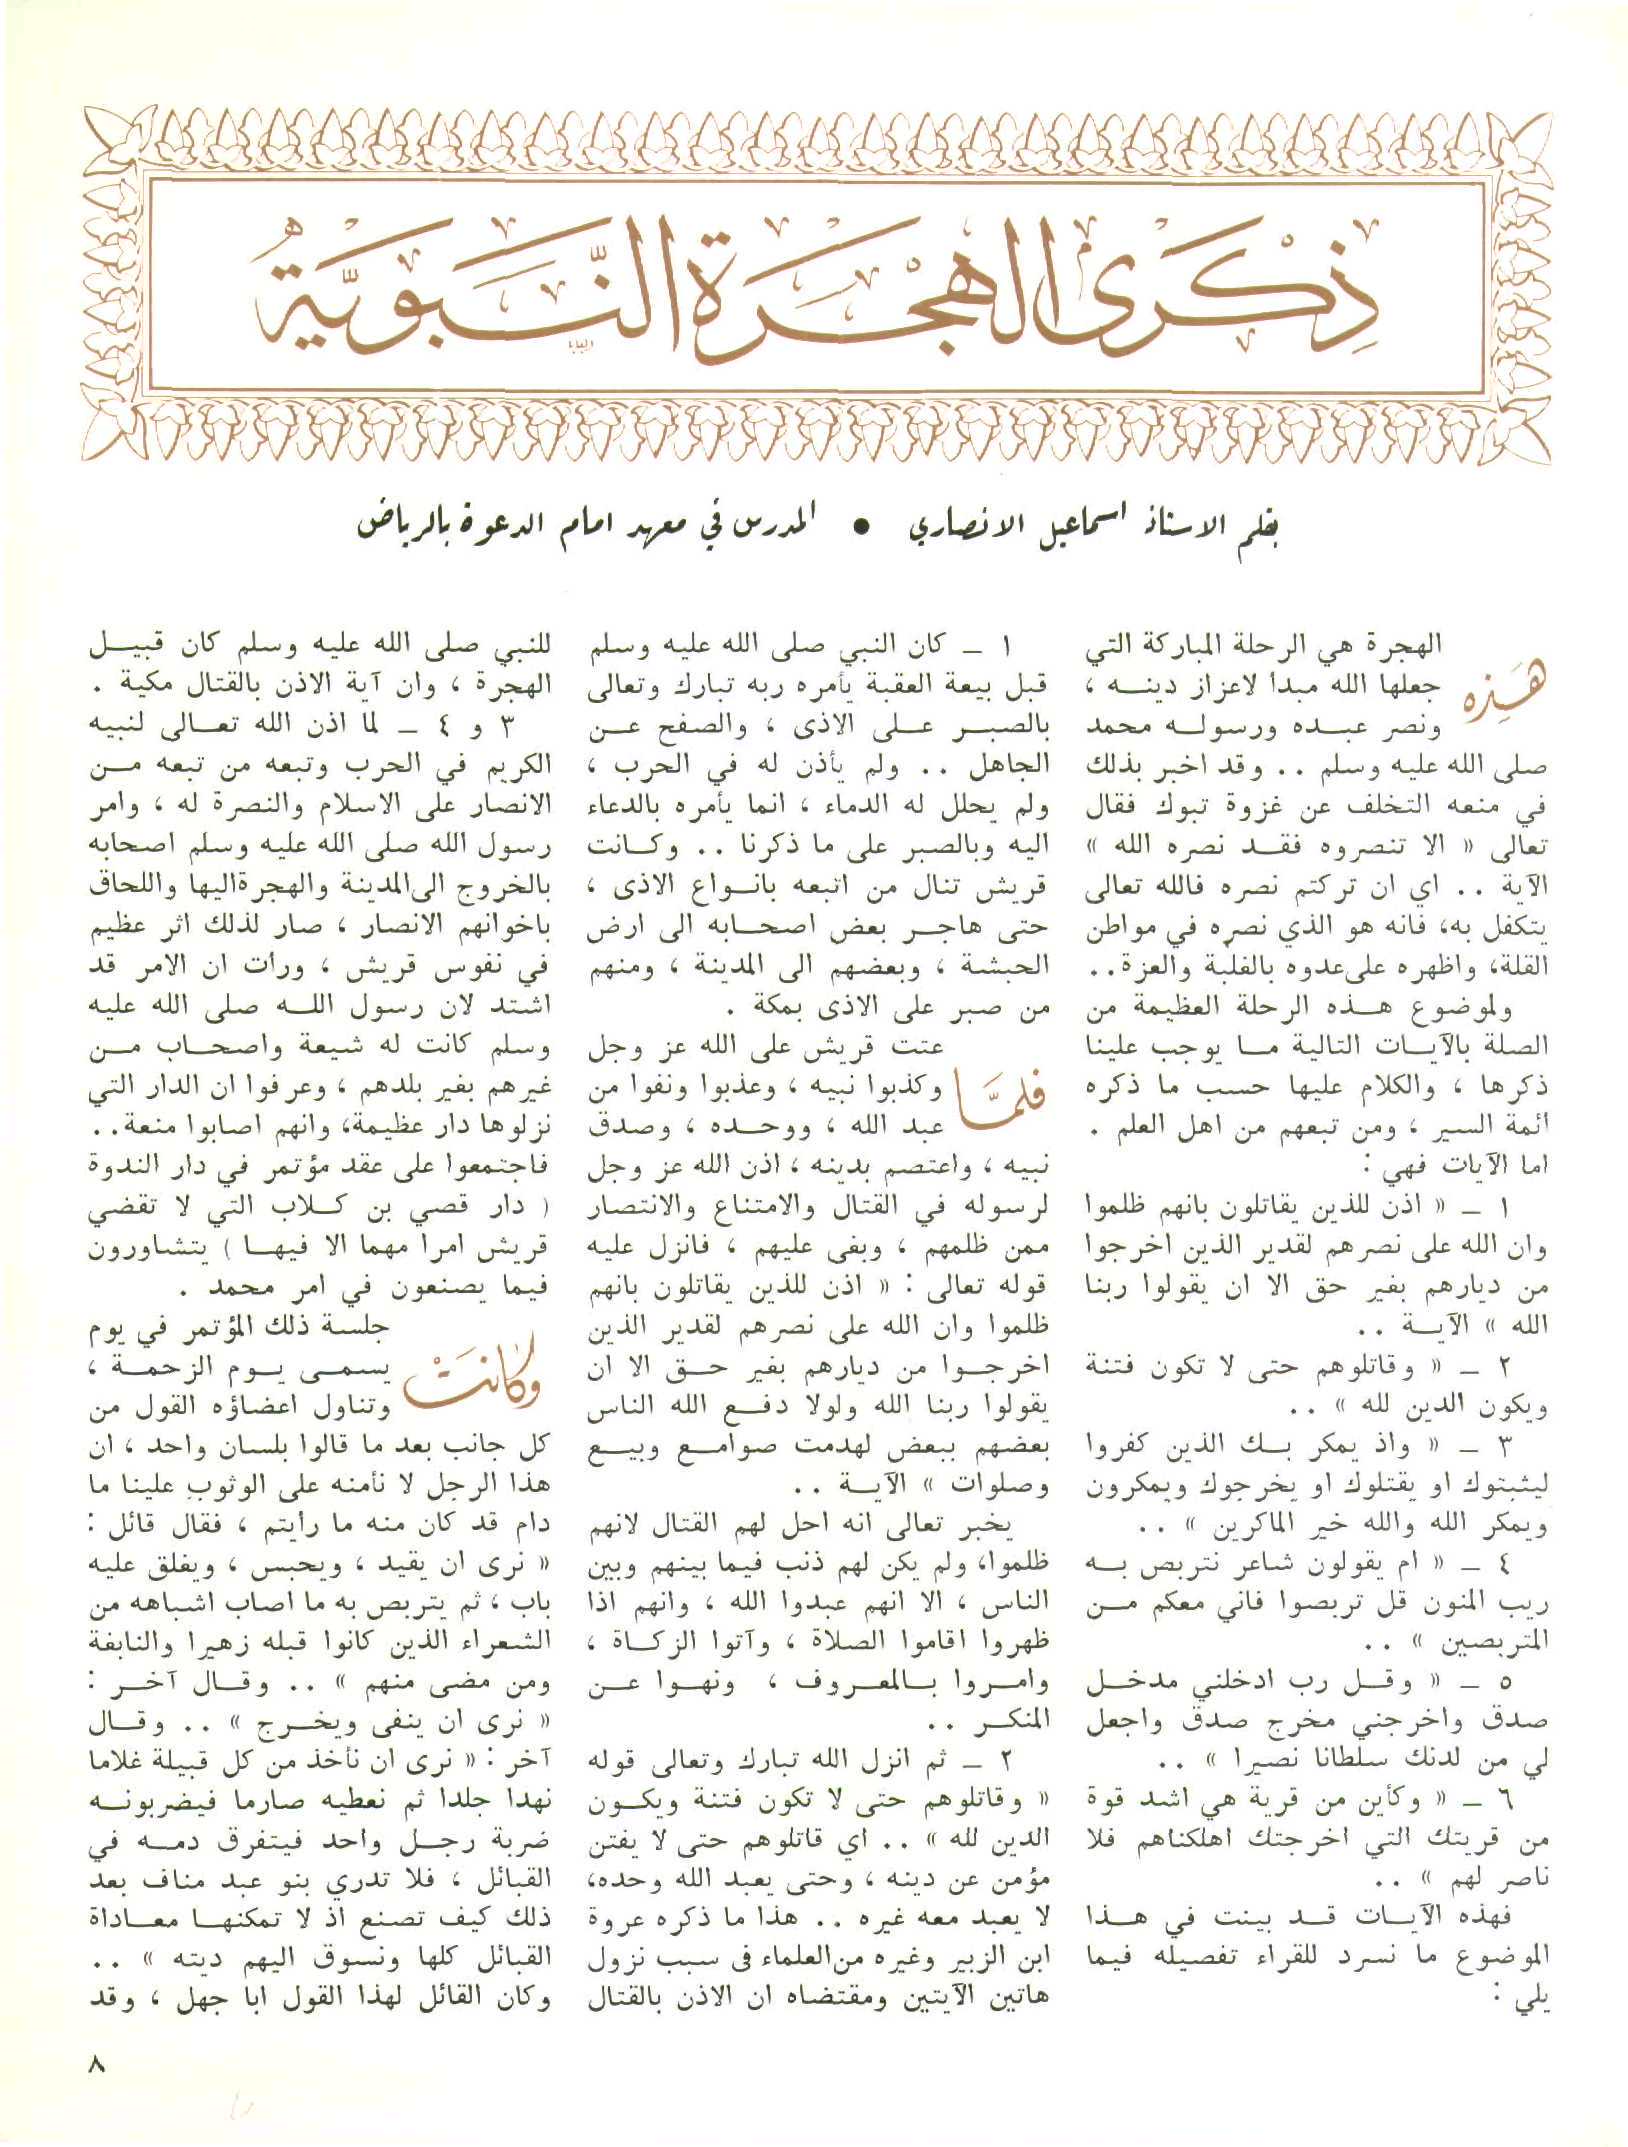 ذِكْرَى الهِجْرَة النَّبَوِيَّة
بقلم الاستاذ اسماعيل الانصاري • المدرس في معهد امام الدعوة بالرياض
هَذِه الهجرة هي الرحلة المباركة التي
جعلها الله مبدأ لاعزاز دينه ،
ونصر عبده ورسوله محمد
صلى الله عليه وسلم .. وقد اخبر بذلك
في منعه التخلف عن غزوة تبوك فقال
تعالى « الا تنصروه فقد نصره الله »
الآية .. اي ان تركتم نصره فالله تعالى
يتكفل به، فانه هو الذي نصره في مواطن
القلة، واظهره على عدوه بالغلبة والعزة..
ولموضوع هذه الرحلة العظيمة من
الصلة بالآيات التالية ما يوجب علينا
ذكرها ، والكلام عليها حسب ما ذكره
ائمة السير ، ومن تبعهم من اهل العلم .
اما الآيات فهي :
١ ـ « اذن للذين يقاتلون بانهم ظلموا
وان الله على نصرهم لقدير الذين اخرجوا
من ديارهم بغير حق الا ان يقولوا ربنا
الله » الآية ..
٢ ـ « وقاتلوهم حتى لا تكون فتنة
ويكون الدين لله » ..
٣ ـ « واذ يمكر بك الذين كفروا
ليثبتوك او يقتلوك او يخرجوك ويمكرون
ويمكر الله والله خير الماكرين » ..
٤ ـ « ام يقولون شاعر نتربص به
ريب المنون قل تربصوا فاني معكم من
المتربصين » ..
٥ ـ « وقل رب ادخلني مدخل
صدق واخرجني مخرج صدق واجعل
لي من لدنك سلطانا نصيرا » ..
٦ ـ « وكأين من قرية هي اشد قوة
من قريتك التي اخرجتك اهلكناهم فلا
ناصر لهم » ..
فهذه الآيات قد بينت في هذا
الموضوع ما نسرد للقراء تفصيله فيما
يلي :
١ ـ كان النبي صلى الله عليه وسلم
قبل بيعة العقبة يأمره ربه تبارك وتعالى
بالصبر على الاذى ، والصفح عن
الجاهل .. ولم يأذن له في الحرب ،
ولم يحلل له الدماء ، انما يأمره بالدعاء
اليه وبالصبر على ما ذكرنا .. وكانت
قريش تنال من اتبعه بانواع الاذى ،
حتى هاجر بعض اصحابه الى ارض
الحبشة ، وبعضهم الى المدينة ، ومنهم
من صبر على الاذى بمكة .
فلمَّا عتت قريش على الله عز وجل
وكذبوا نبيه ، وعذبوا ونفوا من
عبد الله ، ووحده ، وصدق
نبيه ، واعتصم بدينه ، اذن الله عز وجل
لرسوله في القتال والامتناع والانتصار
ممن ظلمهم ، وبغى عليهم ، فانزل عليه
قوله تعالى : « اذن للذين يقاتلون بانهم
ظلموا وان الله على نصرهم لقدير الذين
اخرجوا من ديارهم بغير حق الا ان
يقولوا ربنا الله ولولا دفع الله الناس
بعضهم ببعض لهدمت صوامع وبيع
وصلوات » الآية ..
يخبر تعالى انه احل لهم القتال لانهم
ظلموا، ولم يكن لهم ذنب فيما بينهم وبين
الناس ، الا انهم عبدوا الله ، وانهم اذا
ظهروا اقاموا الصلاة ، وآتوا الزكاة ،
وامروا بالمعروف ، ونهوا عن
المنكر ..
٢ ـ ثم انزل الله تبارك وتعالى قوله
« وقاتلوهم حتى لا تكون فتنة ويكون
الدين لله » .. اي قاتلوهم حتى لا يفتن
مؤمن عن دينه ، وحتى يعبد الله وحده،
لا يعبد معه غيره .. هذا ما ذكره عروة
ابن الزبير وغيره من العلماء في سبب نزول
هاتين الآيتين ومقتضاه ان الاذن بالقتال
للنبي صلى الله عليه وسلم كان قبيل
الهجرة ، وان آية الاذن بالقتال مكية .
٣ و ٤ ـ لما اذن الله تعالى لنبيه
الكريم في الحرب وتبعه من تبعه من
الانصار على الاسلام والنصرة له ، وامر
رسول الله صلى الله عليه وسلم اصحابه
بالخروج الى المدينة والهجرة اليها واللحاق
باخوانهم الانصار ، صار لذلك اثر عظيم
في نفوس قريش ، ورأت ان الامر قد
اشتد لان رسول الله صلى الله عليه
وسلم كانت له شيعة واصحاب من
غيرهم بغير بلدهم ، وعرفوا ان الدار التي
نزلوها دار عظيمة، وانهم اصابوا منعة..
فاجتمعوا على عقد مؤتمر في دار الندوة
( دار قصي بن كلاب التي لا تقضي
قريش امرا مهما الا فيها ) يتشاورون
فيما يصنعون في امر محمد .
وَكانَتْ جلسة ذلك المؤتمر في يوم
يسمى يوم الزحمة ،
وتناول اعضاؤه القول من
كل جانب بعد ما قالوا بلسان واحد ، ان
هذا الرجل لا نأمنه على الوثوب علينا ما
دام قد كان منه ما رأيتم ، فقال قائل :
« نرى ان يقيد ، ويحبس ، ويغلق عليه
باب ، ثم يتربص به ما اصاب اشباهه من
الشعراء الذين كانوا قبله زهيرا والنابغة
ومن مضى منهم » .. وقال آخر :
« نرى ان ينفى ويخرج » .. وقال
آخر : « نرى ان نأخذ من كل قبيلة غلاما
نهدا جلدا ثم نعطيه صارما فيضربونه
ضربة رجل واحد فيتفرق دمه في
القبائل ، فلا تدري بنو عبد مناف بعد
ذلك كيف تصنع اذ لا تمكنها معاداة
القبائل كلها ونسوق اليهم ديته » ..
وكان القائل لهذا القول ابا جهل ، وقد
٨